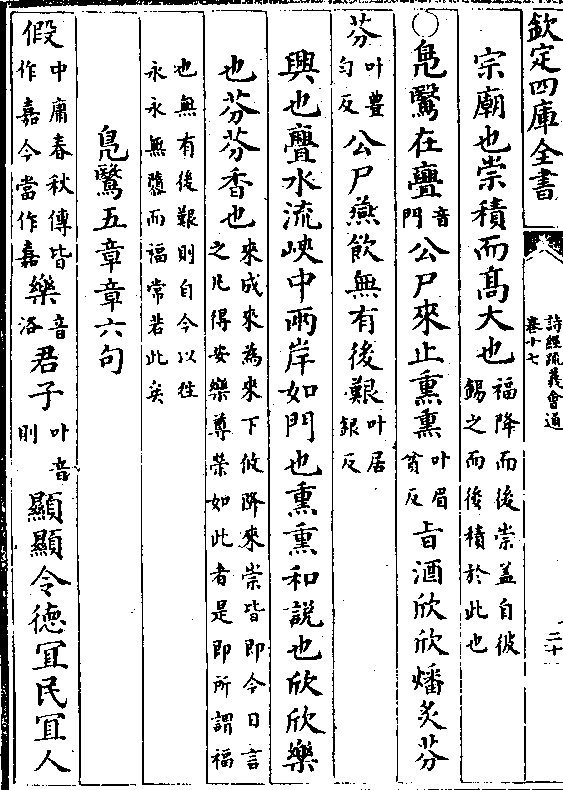 欽定四庫全書
詩經疏義會通
卷十七
二十
宗廟也崇積而高大也福降而後崇蓋自彼錫之而後積於此也
○鳧鷖在亹音門公尸來止熏熏叶眉貧反旨酒欣欣燔炙芬
芬叶豊勻反公尸燕飲無有後艱叶居銀反
興也亹水流峽中兩岸如門也熏熏和説也欣欣樂
也芬芬香也來成來為來下攸降來崇皆即今日言之凡得安樂尊榮如此者是即所謂福
也無有後艱則自今以往永永無隳而福常若此矣
鳧鷖五章章六句
假中庸春秋傳皆作嘉今當作嘉樂音洛君子叶音則顯顯令德宜民宜人